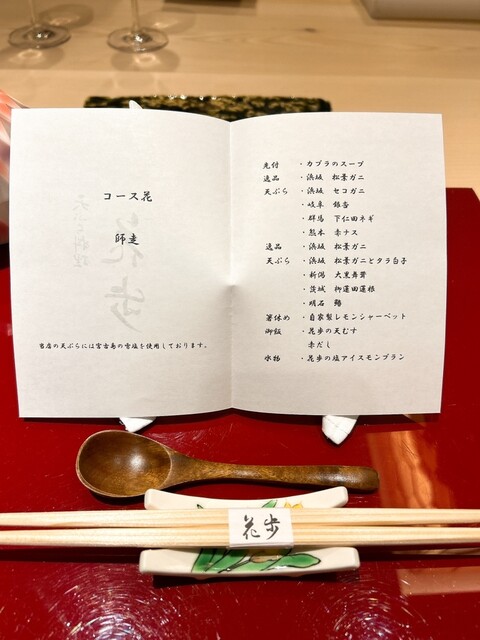 コース花
師走
当店の天ぷらには宮古島の雪塩を使用しております。
先付 ・カブラのスープ
逸品 ・浜坂 松葉ガニ
天ぷら ・浜坂 セコガニ
・岐阜 銀杏
・群馬 下仁田ネギ
・熊本 赤ナス
逸品 ・浜坂 松葉ガニ
天ぷら ・浜坂 松葉ガニとタラ白子
・新潟 大黒舞茸
・茨城 柳蓮田蓮根
・明石 鰆
箸休め ・自家製レモンシャーベット
御飯 ・花歩の天むす
赤だし
水物 ・花歩の塩アイスモンブラン
花歩